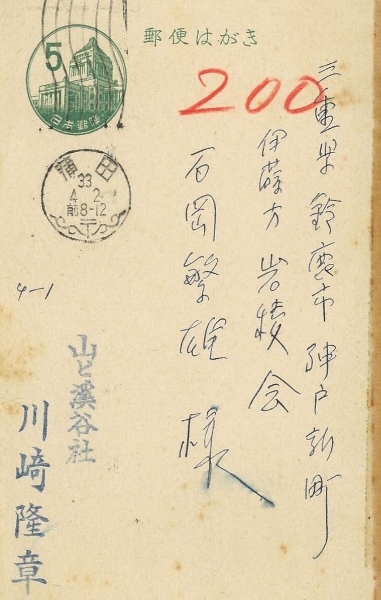 郵便はがき
5
日本郵便
200
三重県鈴鹿市神戸新町
伊藤方岩稜会
石岡繁雄様
蒲田
33
4.2
前8-12
4-1
山と溪谷社
川崎隆章